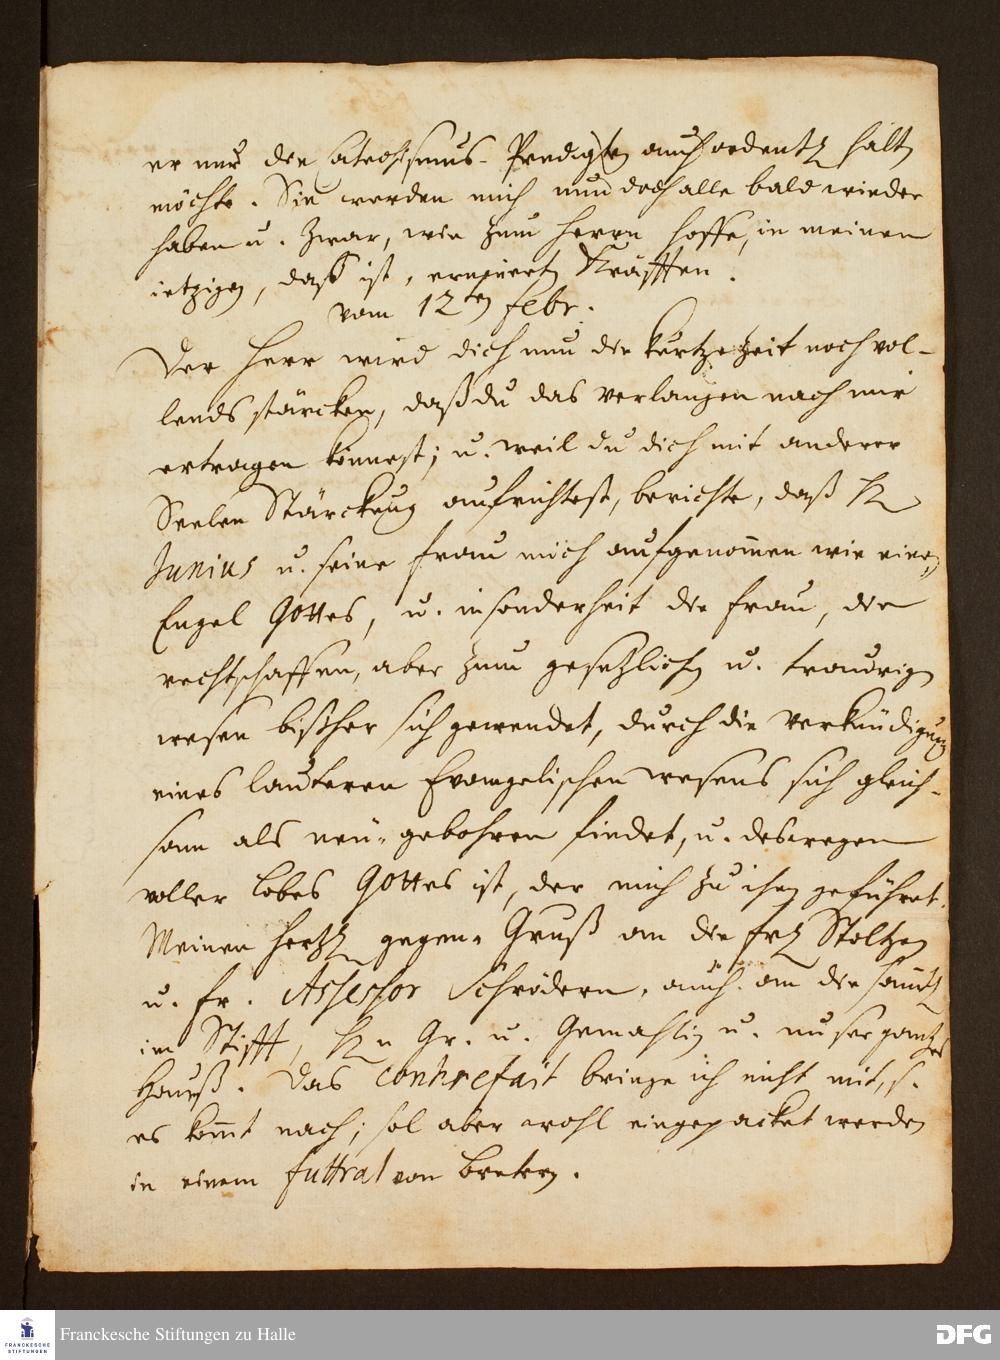 er nur die Catechismus-Predigten auch ordentl halten
möchte. Sie werden mich nun doch alle bald wieder
haben u. zwar, wie zum Herrn hoffe, in meinen
ietzigen, daß ist, erneuerten Kräfften.
vom 12ten Febr.
Der Herr wird dich nun die kurtze Zeit noch vol-
lends stärcken, daß du das verlangen nach mir
ertragen könnest; u. weil du dich mit anderer
Seelen Stärckung aufrichtest, berichte, daß H
Junius u. seine Frau mich aufgenommen wie einen
Engel Gottes, u. insonderheit die Frau, die
rechtschaffen, aber zum gesetzlichen u. traurigen
wesen bißher sich gewendet, durch die Verkündigung
eines lauteren Evangelischen wesens sich gleich-
sam als neu-gebohren findet, u. deswegen
voller Lobes Gottes ist, der mich zu ihen geführet.
Meinen hertzl gegen-Gruß an die Stoltzen
u. Fr. Assessor Schrödern, auch an die sämtl
im Stifft, Hn Gr. u. Gemahlin u. unser gantzes
Hauß. Das Contrefait bringe ich nicht mit, s.
es kommt nach; sol aber wohl eingepacket werden
in einem futtral von Bretern.
Franckesche Stiftungen zu Halle
FRANCKESCHE
STIFTUNGEN
DFG